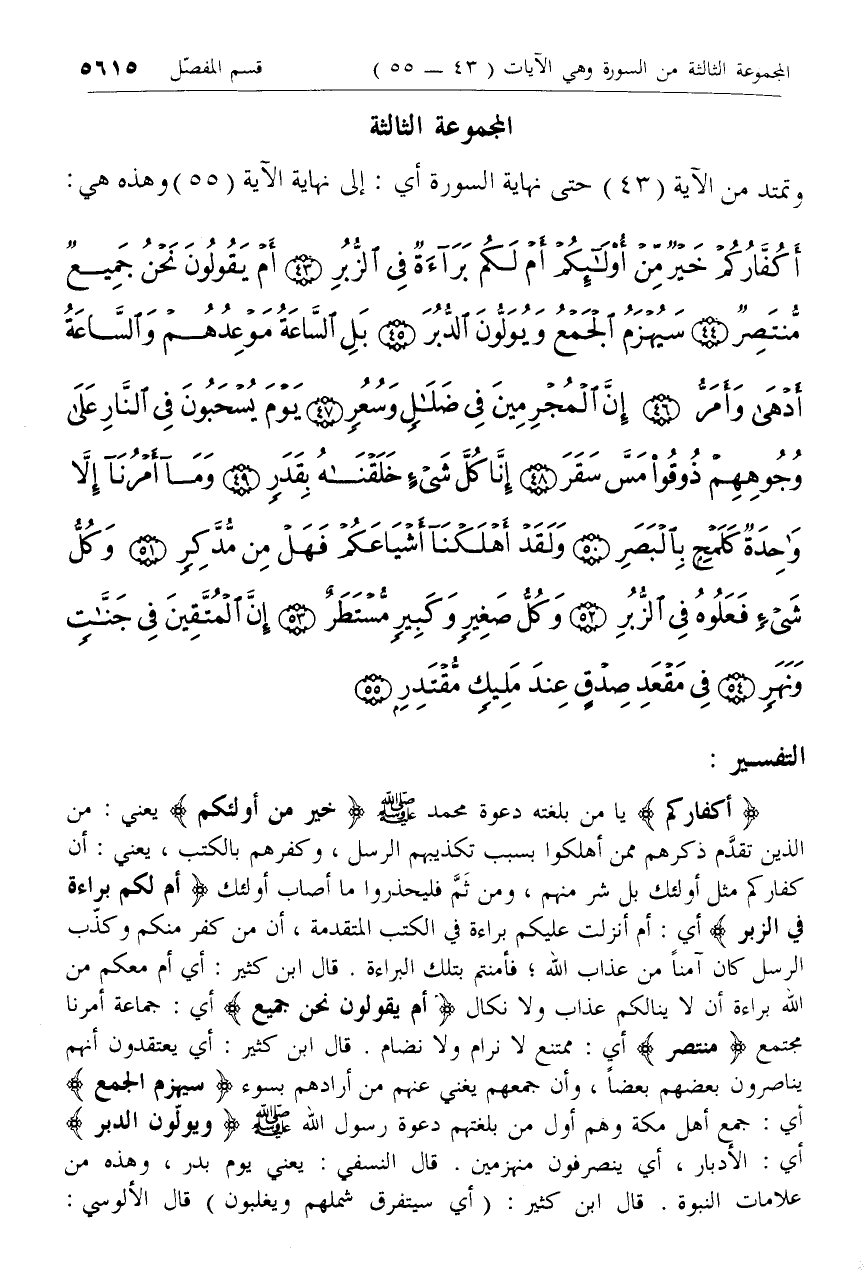 المجموعة الثالثة من السورة وهي الآيات ( ٤٣ — ٥٥ ) قسم المفصّل ٥٦١٥
المجموعة الثالثة
وتمتد من الآية (٤٣) حتى نهاية السورة أي : إلى نهاية الآية (٥٥) وهذه هي :
أَكُفَّارُكُمْ خَيْرٌ مِّنْ أُوْلَٰٓئِكُمْ أَمْ لَكُم بَرَآءَةٌ فِى ٱلزُّبُرِ ﴿٤٣﴾ أَمْ يَقُولُونَ نَحْنُ جَمِيعٌ
مُّنتَصِرٌ ﴿٤٤﴾ سَيُهْزَمُ ٱلْجَمْعُ وَيُوَلُّونَ ٱلدُّبُرَ ﴿٤٥﴾ بَلِ ٱلسَّاعَةُ مَوْعِدُهُمْ وَٱلسَّاعَةُ
أَدْهَىٰ وَأَمَرُّ ﴿٤٦﴾ إِنَّ ٱلْمُجْرِمِينَ فِى ضَلَٰلٍ وَسُعُرٍ ﴿٤٧﴾ يَوْمَ يُسْحَبُونَ فِى ٱلنَّارِ عَلَىٰ
وُجُوهِهِمْ ذُوقُواْ مَسَّ سَقَرَ ﴿٤٨﴾ إِنَّا كُلَّ شَىْءٍ خَلَقْنَٰهُ بِقَدَرٍ ﴿٤٩﴾ وَمَآ أَمْرُنَآ إِلَّا
وَٰحِدَةٌ كَلَمْحٍ بِٱلْبَصَرِ ﴿٥٠﴾ وَلَقَدْ أَهْلَكْنَآ أَشْيَاعَكُمْ فَهَلْ مِن مُّدَّكِرٍ ﴿٥١﴾ وَكُلُّ
شَىْءٍ فَعَلُوهُ فِى ٱلزُّبُرِ ﴿٥٢﴾ وَكُلُّ صَغِيرٍ وَكَبِيرٍ مُّسْتَطَرٌ ﴿٥٣﴾ إِنَّ ٱلْمُتَّقِينَ فِى جَنَّٰتٍ
وَنَهَرٍ ﴿٥٤﴾ فِى مَقْعَدِ صِدْقٍ عِندَ مَلِيكٍ مُّقْتَدِرٍۭ ﴿٥٥﴾
التفسير :
﴿ أكفاركم ﴾ يا من بلغته دعوة محمد ﷺ ﴿ خير من أولئكم ﴾ يعني : من
الذين تقدَّم ذكرهم ممن أهلكوا بسبب تكذيبهم الرسل ، وكفرهم بالكتب ، يعني : أن
كفاركم مثل أولئك بل شر منهم ، ومن ثَمَّ فليحذروا ما أصاب أولئك ﴿ أم لكم براءة
في الزبر ﴾ أي : أم أنزلت عليكم براءة في الكتب المتقدمة ، أن من كفر منكم وكذّب
الرسل كان آمناً من عذاب الله ؛ فأمنتم بتلك البراءة . قال ابن كثير : أي أم معكم من
الله براءة أن لا ينالكم عذاب ولا نكال ﴿ أم يقولون نحن جميع ﴾ أي : جماعة أمرنا
مجتمع ﴿ منتصر ﴾ أي : ممتنع لا نرام ولا نضام . قال ابن كثير : أي يعتقدون أنهم
يناصرون بعضهم بعضاً ، وأن جمعهم يغني عنهم من أرادهم بسوء ﴿ سيهزم الجمع ﴾
أي : جمع أهل مكة وهم أول من بلغتهم دعوة رسول الله ﷺ ﴿ ويولّون الدبر ﴾
أي : الأدبار ، أي ينصرفون منهزمين . قال النسفي : يعني يوم بدر ، وهذه من
علامات النبوة . قال ابن كثير : ( أي سيتفرق شملهم ويغلبون ) قال الألوسي :